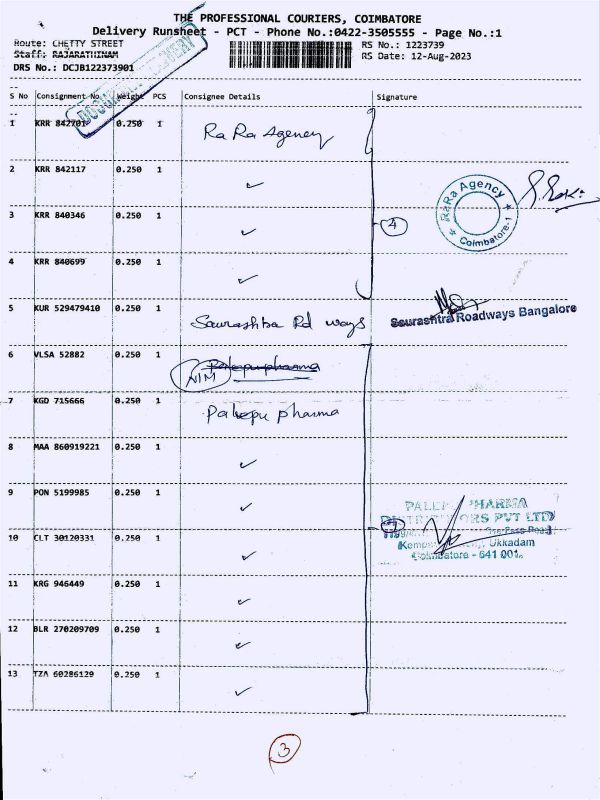 THE PROFESSIONAL COURIERS, COIMBATORE
Delivery Runsheet - PCT - Phone No.:0422-3505555 - Page No.:1
Route: CHETTY STREET
RS No.: 1223739
Staff: RAJARATHINAM
RS Date: 12-Aug-2023
DRS No.: DCJB122373901
S No Consignment No. Weight PCS Consignee Details Signature
1 KRR 842701 0.250 1 Ra Ra Agency
2 KRR 842117 0.250 1 ✓
RaRa Agency
Coimbatore-1
3 KRR 840346 0.250 1 ✓
4
4 KRR 840699 0.250 1 ✓
5 KUR 529479410 0.250 1 Saurashtra Rd ways
Saurashtra Roadways Bangalore
6 VLSA 52882 0.250 1
NIM
7 KGD 715666 0.250 1 Palepu pharma
8 MAA 860919221 0.250 1 ✓
9 PON 5199985 0.250 1 ✓
PHARMA
PVT LTD
10 CLT 30120331 0.250 1 ✓
Ukkadam
Coimbatore - 641 001.
11 KRG 946449 0.250 1 ✓
12 BLR 270209709 0.250 1 ✓
13 TZA 60286129 0.250 1 ✓
3